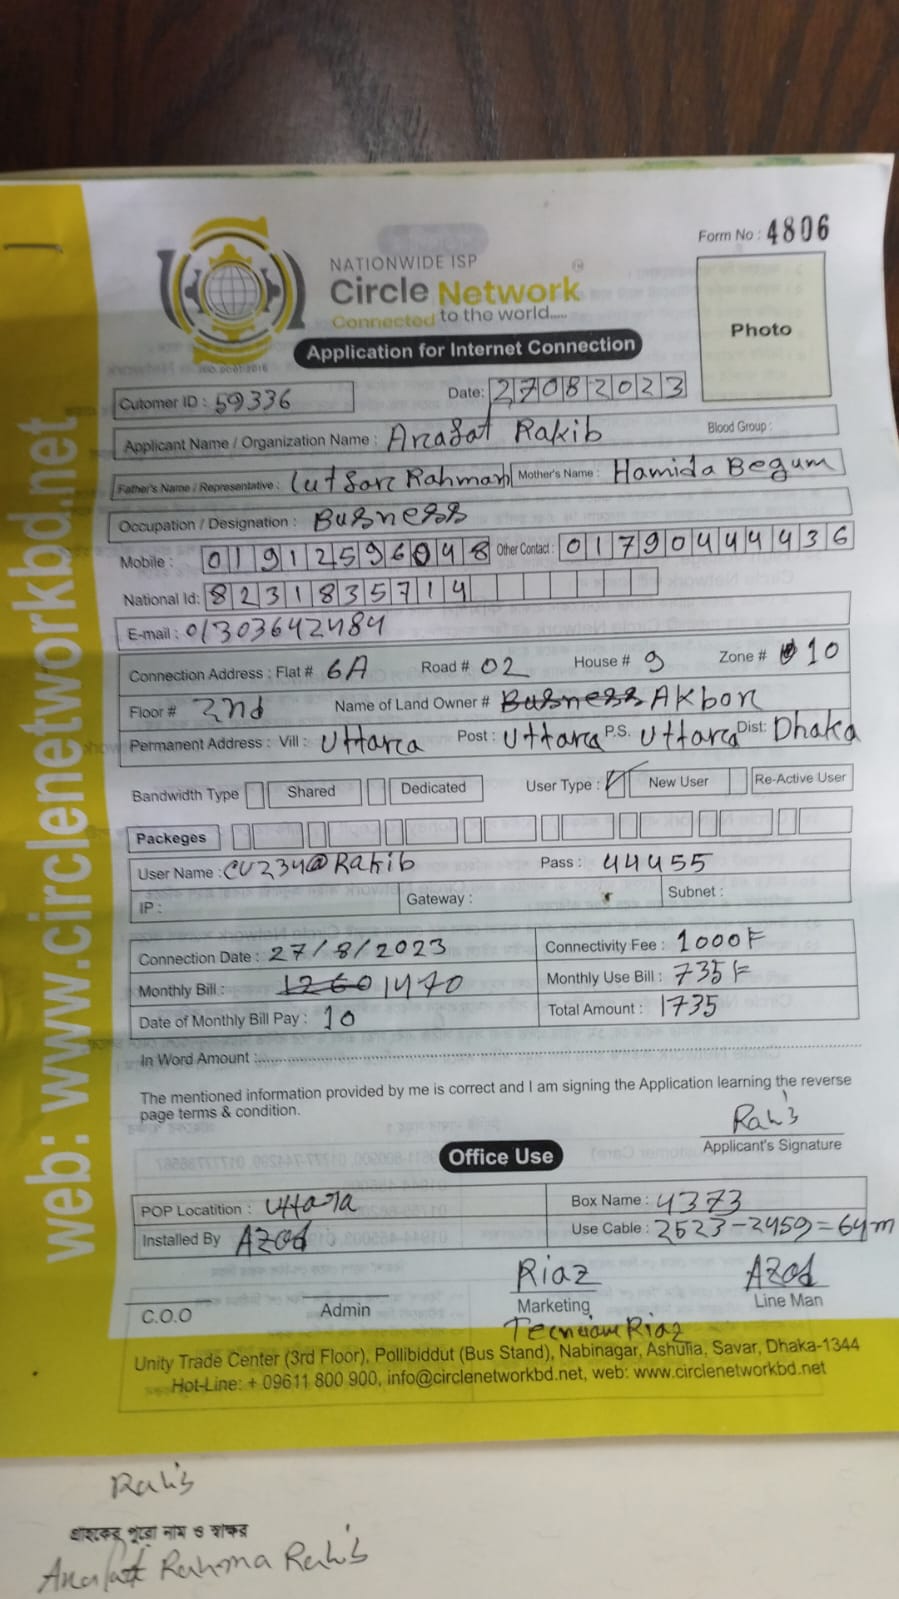 Form No : 4806
NATIONWIDE ISP
Circle Network
Connected to the world.....
ISO 9001:2015
Photo
Application for Internet Connection
Cutomer ID : 59336 Date: 27082023
Applicant Name / Organization Name : Arafat Rakib Blood Group :
Father's Name / Representative : Lutfor Rahman Mother's Name : Hamida Begum
Occupation / Designation : Business
Mobile : 01912596048 Other Contact : 01790444436
National Id: 8231835714
E-mail : 01303642484
Connection Address : Flat # 6A Road # 02 House # 9 Zone # 10
Floor # 2nd Name of Land Owner # Business Akbor
Permanent Address : Vill : Uttara Post : Uttara P.S. Uttara Dist: Dhaka
Bandwidth Type Shared Dedicated User Type : New User Re-Active User
Packeges
User Name : CV234@Rakib Pass : 44455
IP : Gateway : Subnet :
Connection Date : 27/8/2023 Connectivity Fee : 1000
Monthly Bill : 1260 1470 Monthly Use Bill : 735
Date of Monthly Bill Pay : 10 Total Amount : 1735
In Word Amount :
The mentioned information provided by me is correct and I am signing the Application learning the reverse
page terms & condition.
Rakib
Applicant's Signature
Office Use
POP Locatition : Uttara Box Name : 4373
Installed By Azad Use Cable : 2523-2459=64m
Riaz Azad
C.O.O Admin Marketing Line Man
Riaz
Unity Trade Center (3rd Floor), Pollibiddut (Bus Stand), Nabinagar, Ashulia, Savar, Dhaka-1344
Hot-Line: + 09611 800 900, info@circlenetworkbd.net, web: www.circlenetworkbd.net
web: www.circlenetworkbd.net
Rakib
গ্রাহকের পুরো নাম ও স্বাক্ষর
Arafat Rahman Rakib